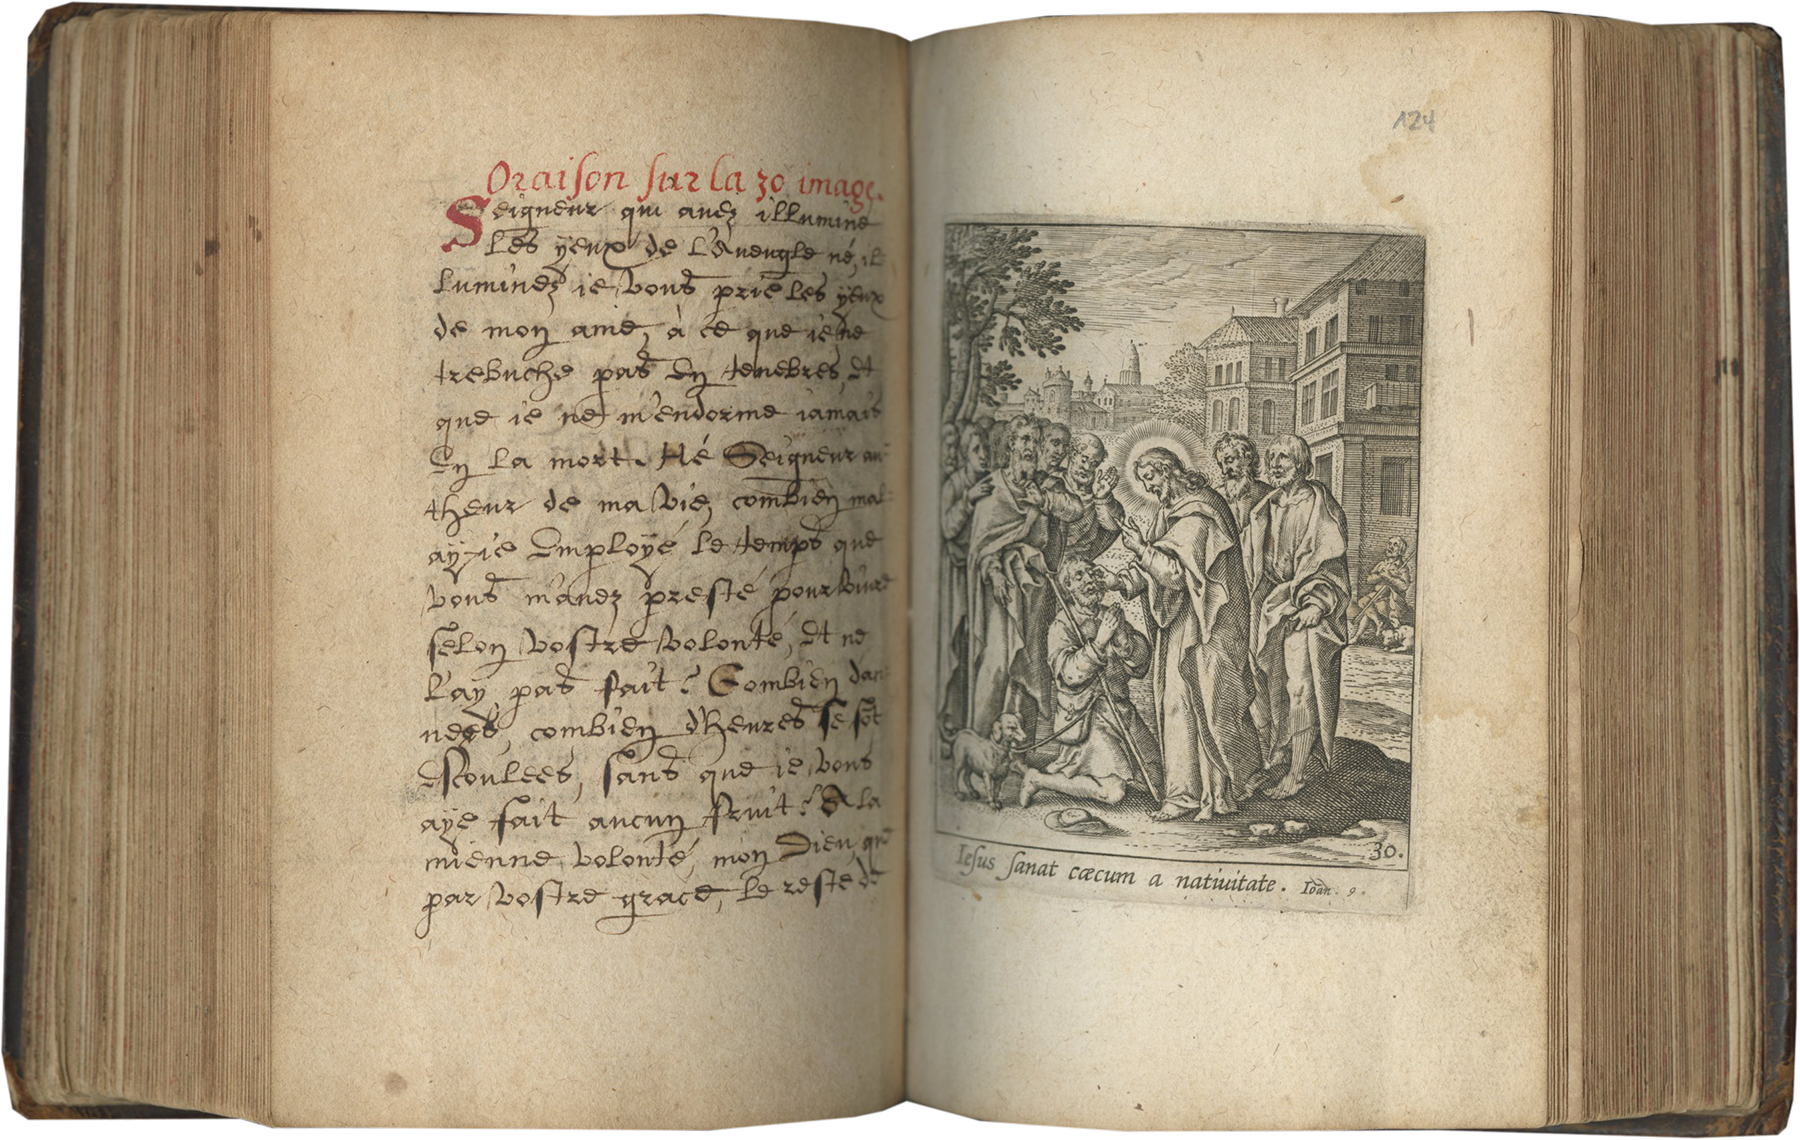 Oraison sur la 30 image.
Seigneur qui auez illumine
les yeux de l'Aueugle né, il
luminez ie vous prie les yeux
de mon ame, à ce que ie ne
trebuche pas en tenebres, et
que ie ne m'endorme iamais
en la mort. Hé Seigneur au
theur de ma vie, combien mal
ay-ie employé le temps que
vous m'auez presté pour viure
selon vostre volonté, et ne
l'ay pas fait? Combien dan
nees, combien d'heures se sōt
escoulees, sans que ie vous
aye fait aucun fruit? A la
mienne volonté, mon Dieu, que
par vostre grace, le reste de
124
30.
Iesus sanat cæcum a natiuitate. Ioan. 9.